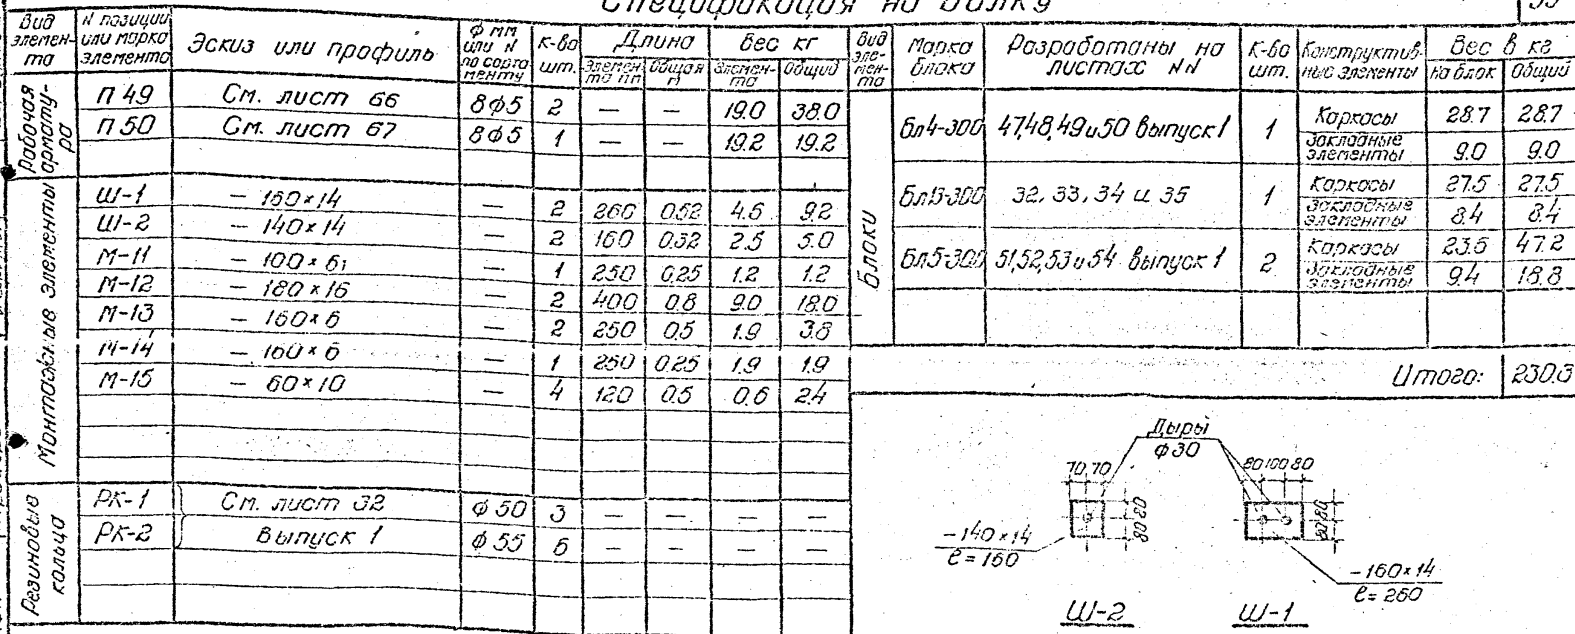 Спецификация на балку
Вид элемента | N позиции или марка элемента | Эскиз или профиль | ф мм или N по сортаменту | К-во шт. | Длина | Вес кг
Элемента мм | Общая м | Элемента | Общий
Рабочая арматура
П 49 | См. лист 66 | 8ф5 | 2 | — | — | 19.0 | 38.0
П 50 | См. лист 67 | 8ф5 | 1 | — | — | 19.2 | 19.2
Монтажные элементы
Ш-1 | – 160×14 | — | 2 | 260 | 0.52 | 4.6 | 9.2
Ш-2 | – 140×14 | — | 2 | 160 | 0.32 | 2.5 | 5.0
М-11 | – 100×6 | — | 1 | 250 | 0.25 | 1.2 | 1.2
М-12 | – 180×16 | — | 2 | 400 | 0.8 | 9.0 | 18.0
М-13 | – 160×6 | — | 2 | 250 | 0.5 | 1.9 | 3.8
М-14 | – 160×6 | — | 1 | 250 | 0.25 | 1.9 | 1.9
М-15 | – 60×10 | — | 4 | 120 | 0.5 | 0.6 | 2.4
Резиновые кольца
РК-1 | См. лист 32 | ф 50 | 3 | — | — | — | —
РК-2 | Выпуск 1 | ф 55 | 6 | — | — | — | —
Вид элемента | Марка блока | Разработаны на листах NN | К-во шт. | Конструктивные элементы | Вес в кг
На блок | Общий
Блоки
Бл4-300 | 47,48,49 и 50 выпуск 1 | 1 | Каркасы | 28.7 | 28.7
Закладные элементы | 9.0 | 9.0
Бл13-300 | 32, 33, 34 и 35 | 1 | Каркасы | 27.5 | 27.5
Закладные элементы | 8.4 | 8.4
Бл5-300 | 51,52,53 и 54 выпуск 1 | 2 | Каркасы | 23.6 | 47.2
Закладные элементы | 9.4 | 18.8
Итого: | 230.3
Дыры
ф30
70 70
80 100 80
80 80
80 80
–140×14
ℓ=160
–160×14
ℓ=260
Ш-2
Ш-1